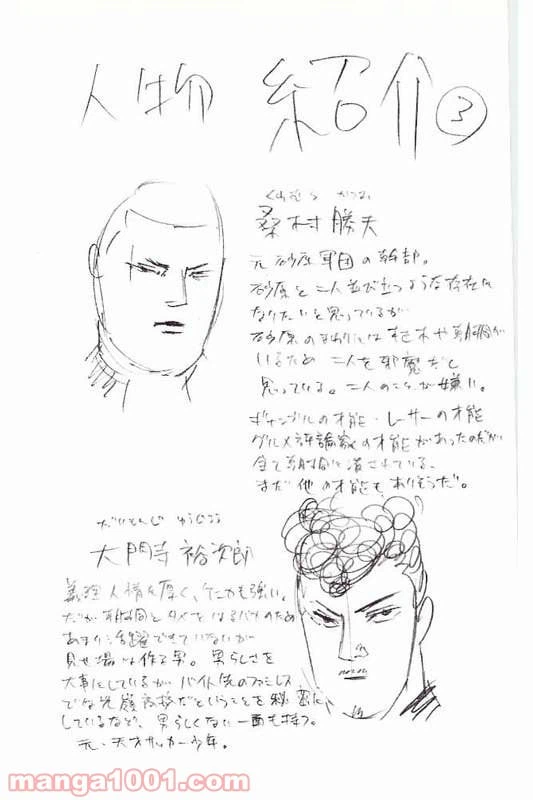 人物 紹介③
くわむら かつお
桑村 勝夫
元砂原軍団の幹部。
砂原と二人並び立つような存在に
なりたいと思っているが
砂原のまわりには すさ木や 朝岡が
いるため 二人を邪魔だと
思っている。二人のことが嫌い。
ギャンブルの才能・レーサーの才能
グルメ評論家の才能があったのだが
全て 潰されている。
まだ他の才能も ありそうだ。
だいもんじ ゆうじろう
大門寺 裕次郎
義理人情に厚く、ケンカも強い。
だが とタメをはるバカのため
あまり活躍できていないが
見せ場は作る男。男らしさを
大事にしているが バイト先のファミレス
でな だということを秘密に
しているなど、男らしくない一面も持つ。
元・天才サッカー少年。
manga1001.com